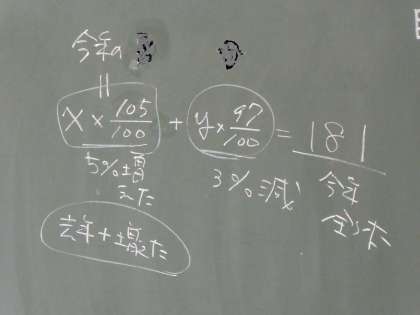 今年の
||
x × 105/100 + y × 97/100 = 181
5%増
えた
3%減
今年
全体
去年+増えた